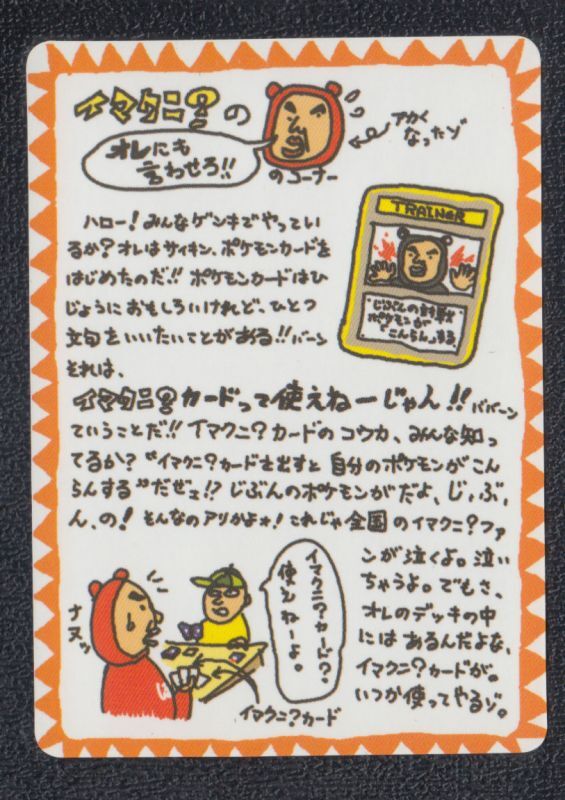 イマクニ?の
オレにも
言わせろ!!
のコーナー
アカく
なったゾ
ハロー!みんなゲンキでやってい
るか?オレはサイキン、ポケモンカードを
はじめたのだ!!ポケモンカードはひ
じょうにおもしろいけれど、ひとつ
文句をいいたいことがある!!バーン
それは、
TRAINER
じぶんの対戦
ポケモンが
「こんらん」する
イマクニ?カードって使えねーじゃん!!ババーン
ていうことだ!!イマクニ?カードのコウカ、みんな知っ
てるか?“イマクニ?カードを出すと自分のポケモンがこん
らんする”だぜェ!?じぶんのポケモンがだよ、じ、ぶ、
ん、の!そんなのアリかよ★!これじゃ全国のイマクニ?ファ
ンが泣くよ。泣い
ちゃうよ。でもさ、
オレのデッキの中
にはあるんだよな、
イマクニ?カードが。
いつか使ってやるゾ。
イマクニ?カード?
使えねーよ。
ナヌッ
イマクニ?カード